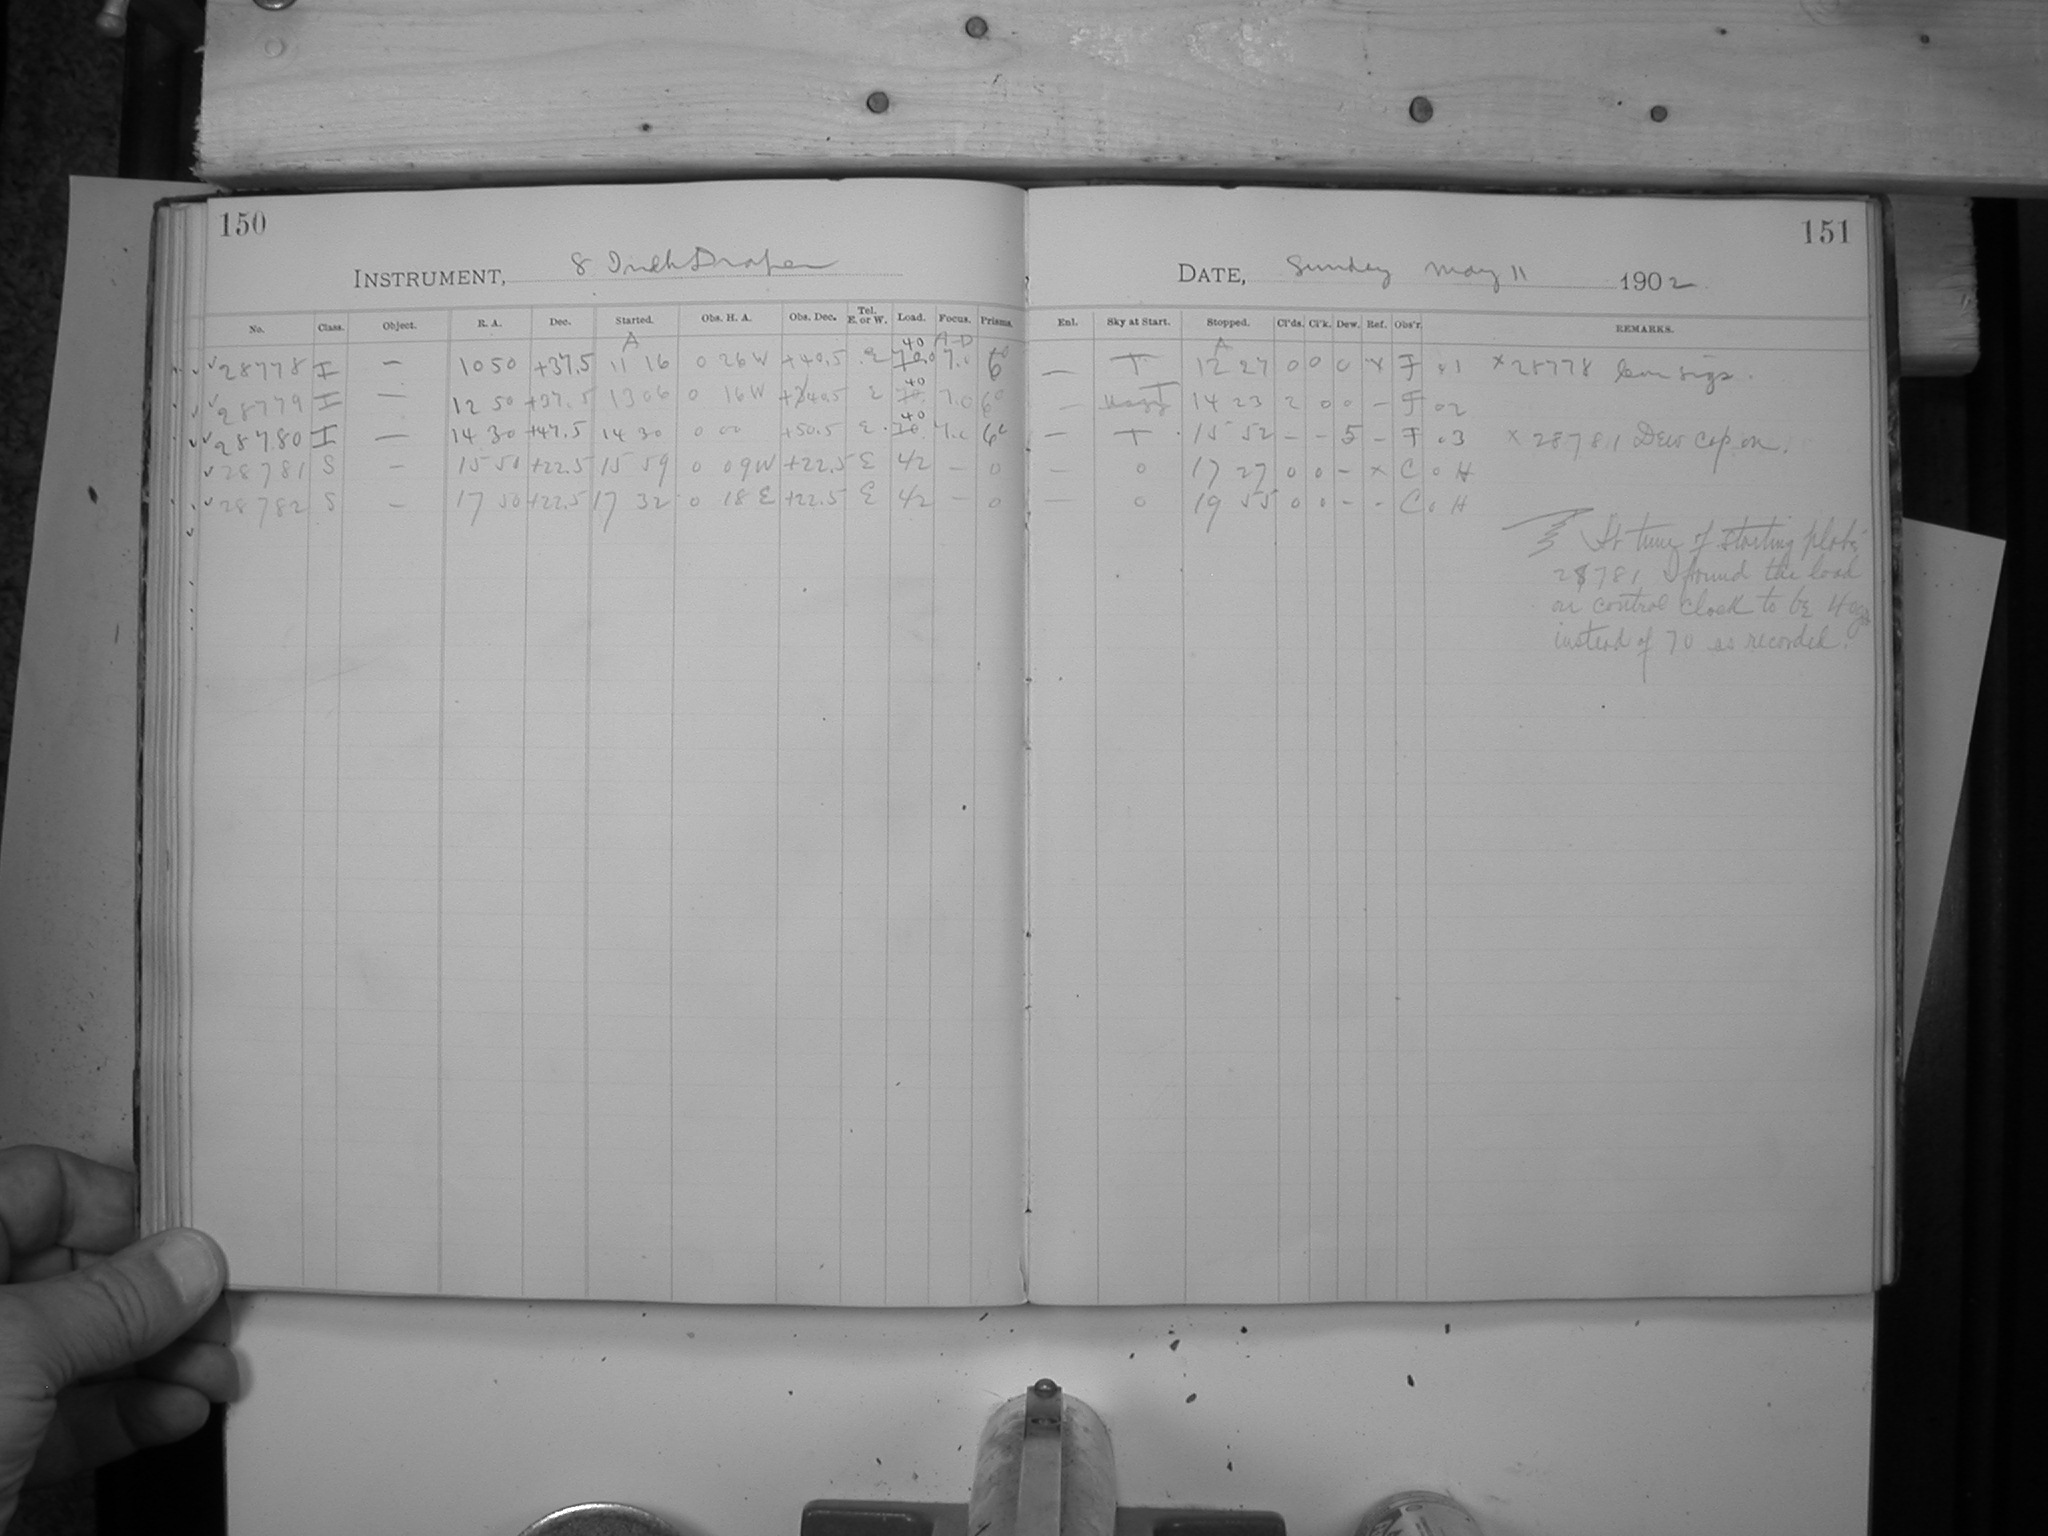 150
INSTRUMENT, 8 Inch Draper
No. Class. Object. R. A. Dec. Started. Obs. H. A. Obs. Dec. Tel. E. or W. Load. Focus. Prisms.
A 40 A-D
28778 I — 10 50 +37.5 11 16 0 26 W +40.5 E 70.0 7.0 6°
40
28779 I — 12 50 +37.5 13 06 0 16 W +40.5 E 70. 7.0 6°
40
28780 I — 14 30 +47.5 14 30 0 00 +50.5 E 70. 7.0 6°
28781 S — 15 50 +22.5 15 59 0 09 W +22.5 E 42 — 0
28782 S — 17 50 +22.5 17 32 0 18 E +22.5 E 42 — 0
151
DATE, Sunday May 11 1902
Enl. Sky at Start. Stopped. Cl'ds. Cl'k. Dew. Ref. Obs'r. REMARKS.
A
— T 12 27 0 0 0 x F .01 x 28778
— T 14 23 2 0 0 – F 02
— T 15 52 – – 5 – F .03 x 28781 Dew cap on.
— 0 17 27 0 0 – x C o H
— 0 19 55 0 0 – – C o H
At time of starting plate
28781 I found the load
on control clock to be 40 gs
instead of 70 as recorded.